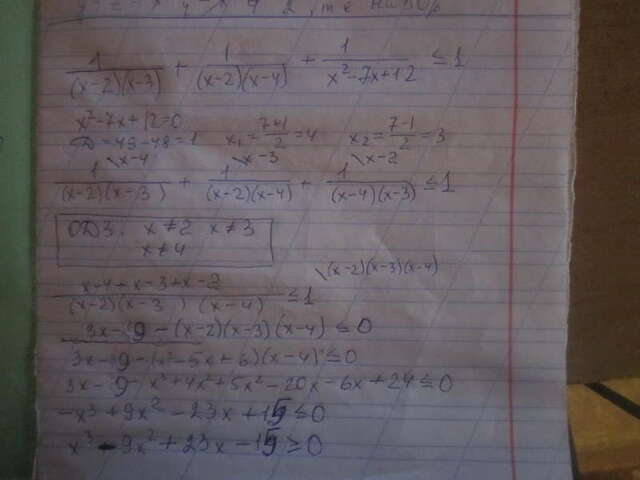 1/((x-2)(x-3)) + 1/((x-2)(x-4)) + 1/(x²-7x+12) ≤ 1
x²-7x+12=0
D=49-48=1 x₁=(7+1)/2=4 x₂=(7-1)/2=3
1\x-4/((x-2)(x-3)) + 1\x-3/((x-2)(x-4)) + 1\x-2/((x-4)(x-3)) ≤ 1
ОДЗ: x≠2 x≠3
x≠4
(x-4+x-3+x-2)/((x-2)(x-3)(x-4)) ≤ 1 \(x-2)(x-3)(x-4)
3x-9-(x-2)(x-3)(x-4) ≤ 0
3x-9-(x²-5x+6)(x-4) ≤ 0
3x-9-x³+4x²+5x²-20x-6x+24 ≤ 0
-x³+9x²-23x+15 ≤ 0
x³-9x²+23x-15 ≥ 0